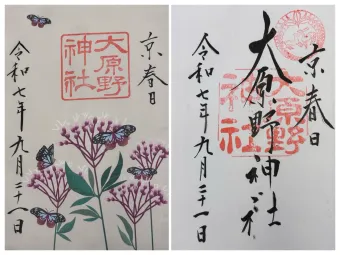 京春日
大原野
神社
令和七年九月二十一日
京春日
大原野神社
大原野
神社
令和七年九月二十一日